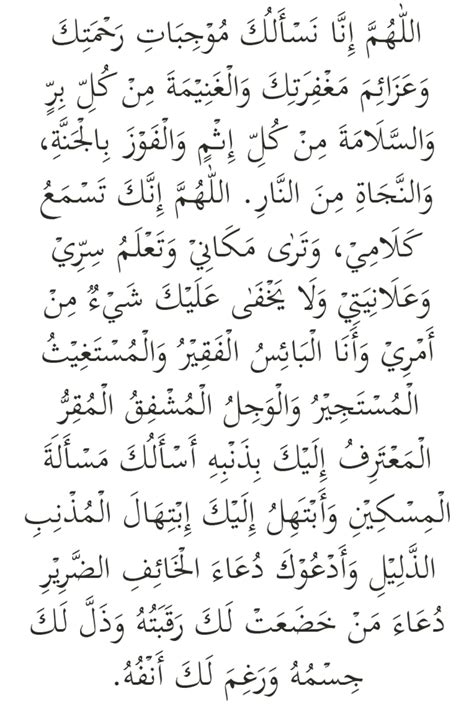 اللّٰهُمَّ إِنَّا نَسْأَلُكَ مُوْجِبَاتِ رَحْمَتِكَ
وَعَزَائِمَ مَغْفِرَتِكَ وَالْغَنِيْمَةَ مِنْ كُلِّ بِرٍّ
وَالسَّلَامَةَ مِنْ كُلِّ إِثْمٍ وَالْفَوْزَ بِالْجَنَّةِ،
وَالنَّجَاةِ مِنَ النَّارِ. اللّٰهُمَّ إِنَّكَ تَسْمَعُ
كَلَامِيْ، وَتَرٰى مَكَانِيْ وَتَعْلَمُ سِرِّيْ
وَعَلَانِيَتِيْ وَلَا يَخْفَى عَلَيْكَ شَيْءٌ مِنْ
أَمْرِيْ وَأَنَا الْبَائِسُ الْفَقِيْرُ وَالْمُسْتَغِيْثُ
الْمُسْتَجِيْرُ وَالْوَجِلُ الْمُشْفِقُ الْمُقِرُّ
الْمَعْتَرِفُ إِلَيْكَ بِذَنْبِهِ أَسْأَلُكَ مَسْأَلَةَ
الْمِسْكِيْنِ وَأَبْتَهِلُ إِلَيْكَ إِبْتِهَالَ الْمُذْنِبِ
الذَّلِيْلِ وَأَدْعُوْكَ دُعَاءَ الْخَائِفِ الضَّرِيْرِ
دُعَاءَ مَنْ خَضَعَتْ لَكَ رَقَبَتُهُ وَذَلَّ لَكَ
جِسْمُهُ وَرَغِمَ لَكَ أَنْفُهُ.